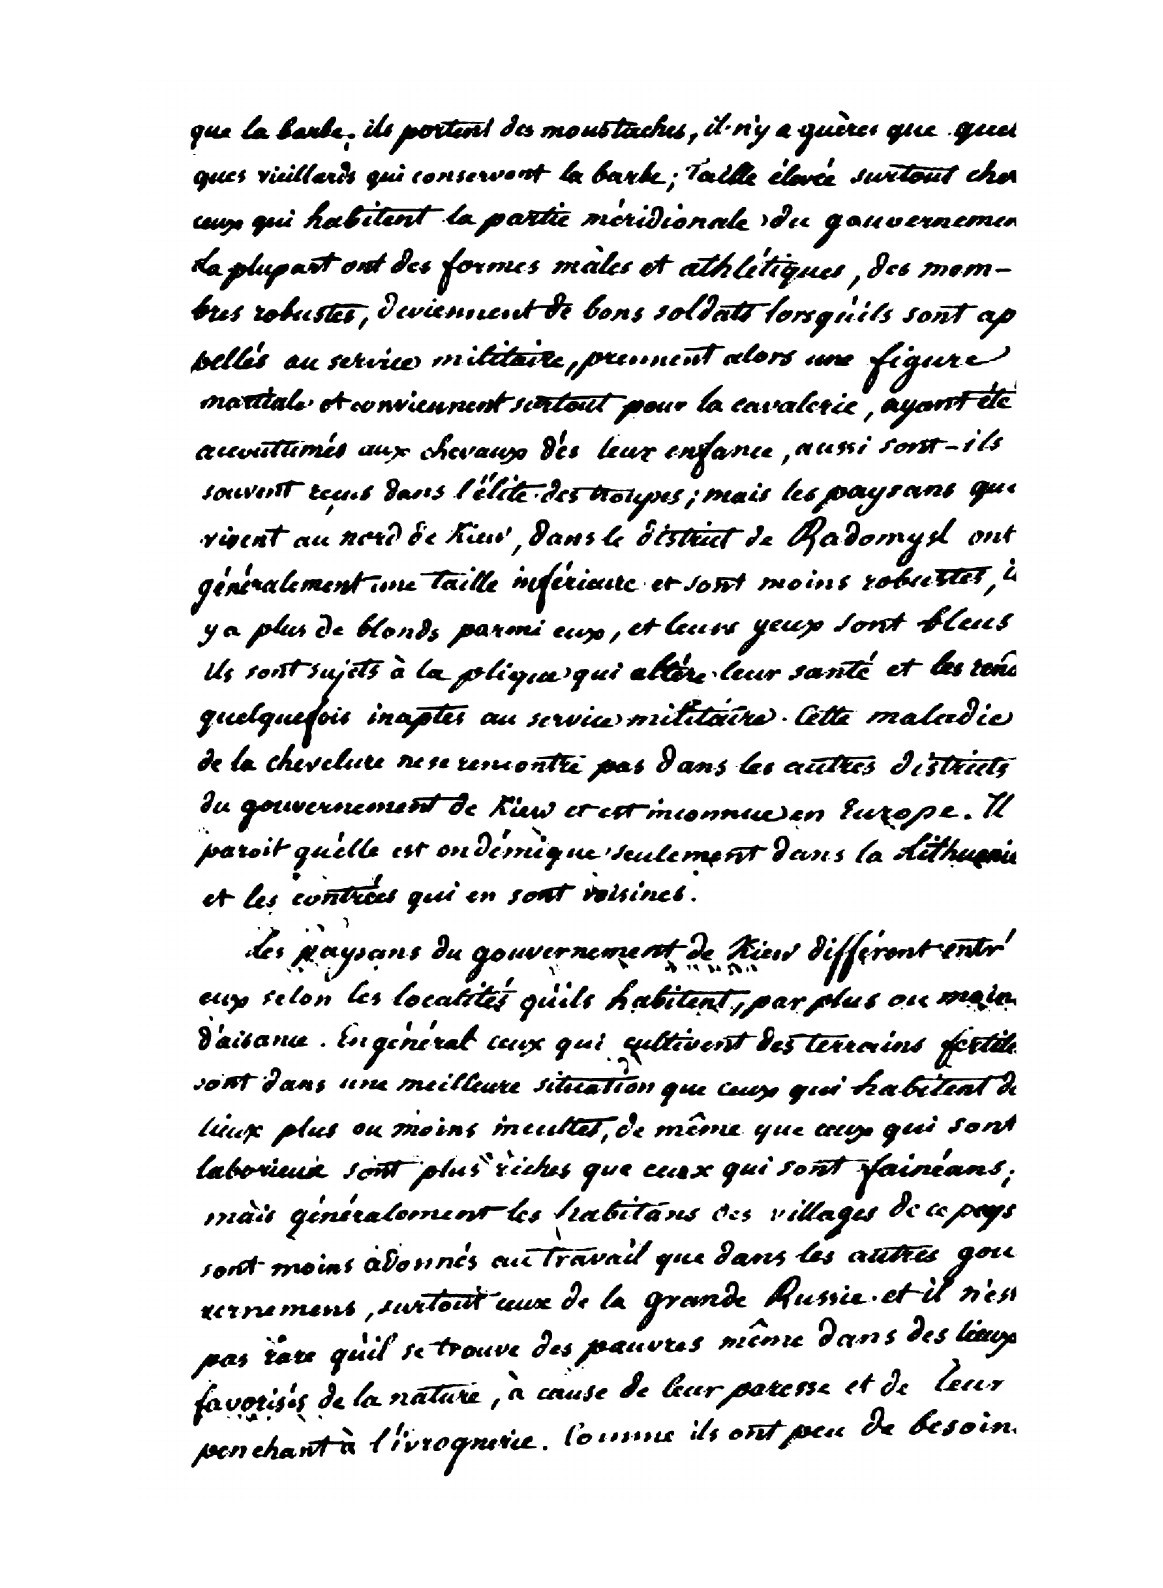 que la barbe; ils portent des moustaches, il n'y a guères que quel
ques vieillards qui conservent la barbe; Taille élevée surtout chez
ceux qui habitent la partie méridionale du gouvernemen
La plupart ont des formes mâles et athlétiques, des mem-
bres robustes, deviennent de bons soldats lorsqu'ils sont ap
pellés au service militaire, prennent alors une figure
martiale et conviennent surtout pour la cavalerie, ayant été
accoutumés aux chevaux dès leur enfance, aussi sont-ils
souvent reçus dans l'élite des troupes; mais les paysans qui
vivent au nord de Kiew, dans le district de Radomysl ont
généralement une taille inférieure et sont moins robustes, il
y a plus de blonds parmi eux, et leurs yeux sont bleus
Ils sont sujets à la plique qui altère leur santé et les rend
quelquefois inaptes au service militaire. Cette maladie
de la chevelure ne se rencontre pas dans les autres districts
du gouvernement de Kiew et est inconnue en Europe. Il
paroit qu'elle est endémique seulement dans la Lithuanie
et les contrées qui en sont voisines.
Les paysans du gouvernement de Kiew différent entr'
eux selon les localités qu'ils habitent, par plus ou moin
d'aisance. En général ceux qui cultivent des terrains fertile
sont dans une meilleure situation que ceux qui habitent de
lieux plus ou moins incultes, de même que ceux qui sont
laborieux sont plus riches que ceux qui sont fainéans;
mais généralement les habitans des villages de ce pays
sont moins adonnés au travail que dans les autres gou
vernemens, surtout ceux de la grande Russie et il n'est
pas rare qu'il se trouve des pauvres même dans des lieux
favorisés de la nature, à cause de leur paresse et de leur
penchant à l'ivrognerie. Comme ils ont peu de besoin